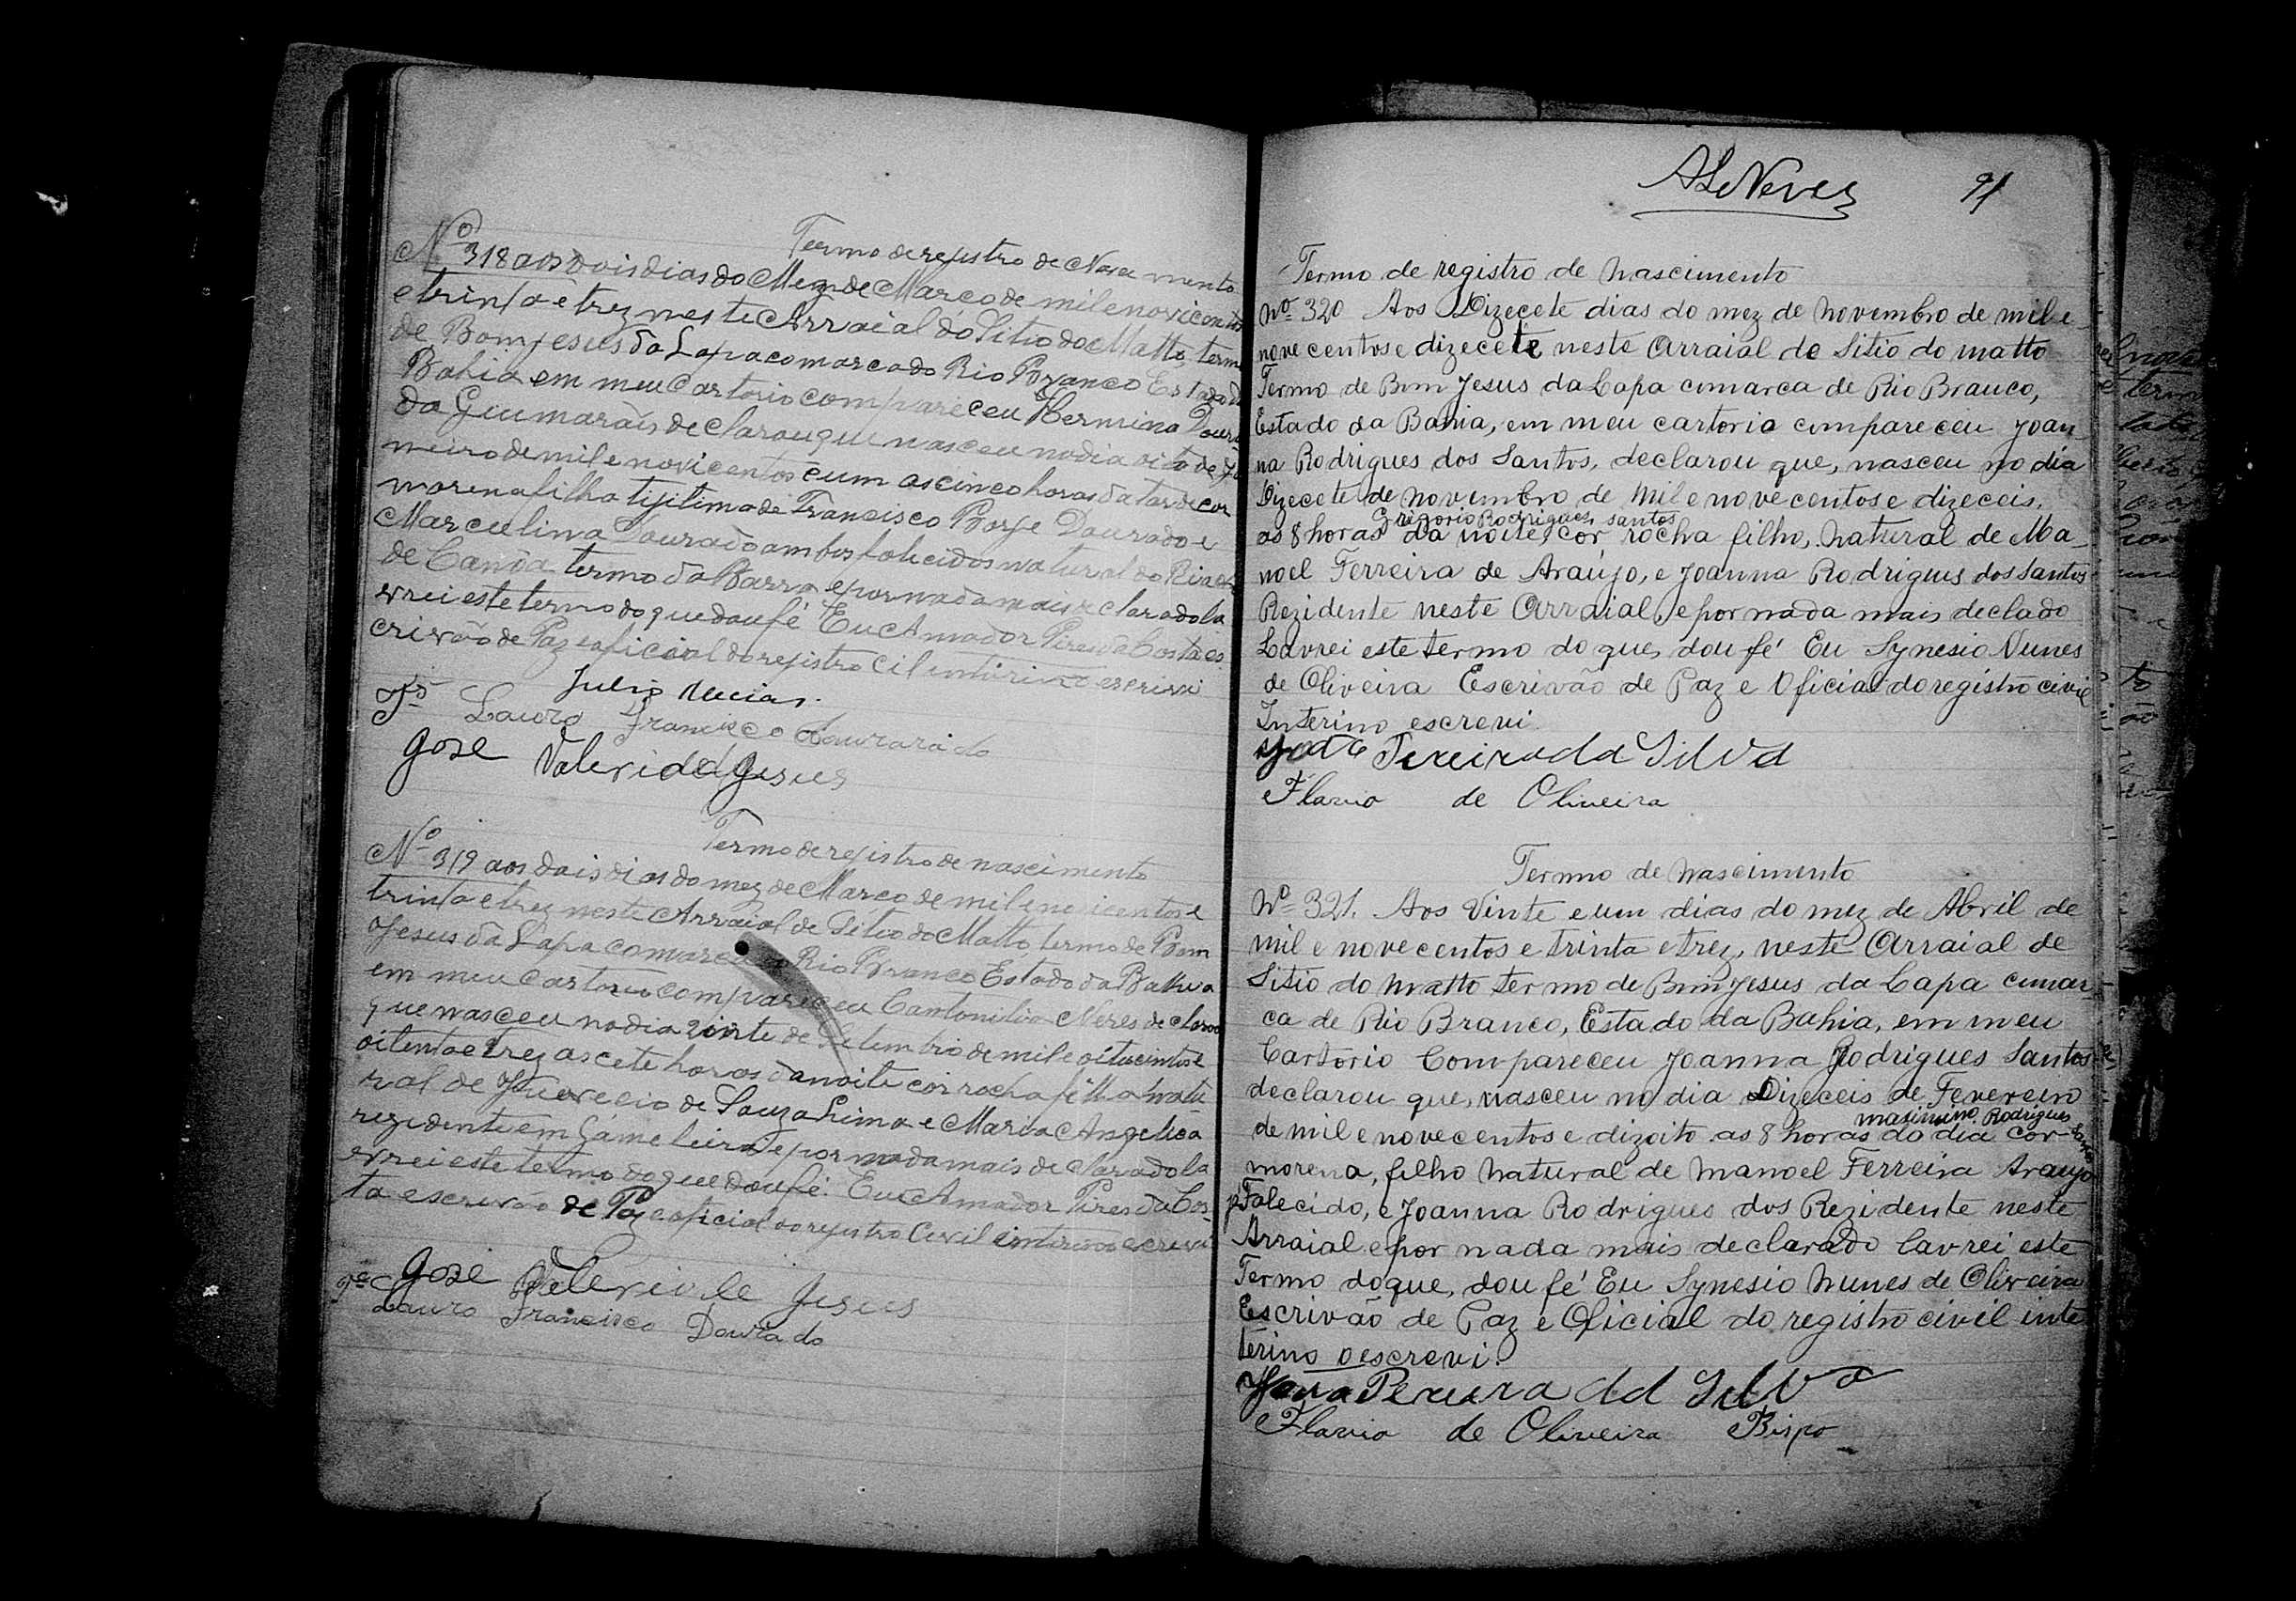 Termo de rejistro de Nascimento
Nº 318 aos dois dias do Mez de Março de mil e novicentos
e trinta e trez neste Arraial do Sitio do Matto, termo
de Bom Jesus da Lapa comarca do Rio Branco Estado da
Bahia em meu Cartorio compareceu Hermina Doura
da Guimarais declarou que nasceu no dia oito de Ja
neiro de mil e novicentos e um as cinco horas da tarde cor
morena filha lijitima de Francisco Borje Dourado e
Marculina Dourado ambos falicidos natural do Riacho
de Canôa termo da Barra e por nada mais declarado la
vrei este termo do que dou fé Eu Amador Pires da Costa es
crivão de Paz e oficial do rejistro Cil interino escrivi
Julio
Lauro Francisco Dourado
Jose Valerio de Jesus
Termo de rejistro de nascimento
Nº 319 aos dois dias do mez de Março de mil e novicentos e
trinta e trez neste Arraial de Sitio do Matto, termo de Bom
Jesus da Lapa comarca Rio Branco Estado da Bahia
em meu Cartorio compareceu Cantonilia Neres declarou
que nasceu no dia vinte de Setembro de mil e oitocintos e
oitenta e trez as cete horas da noite cor rocha filha natu
ral de de Souza Lima e Maria Angelica
rezidente em Gameleira e por nada mais declarado la
vrei este termo do que dou fé. Eu Amador Pires da Cos-
ta escrivão de Paz e oficial do rejistro Civil interino escrevi
Jose Valerio de Jesus
Lauro Francisco Dourado
A L Neves 91
Termo de registro de Nascimento
Nº 320 Aos Dizecete dias do mez de Novembro de mil e
nove centos e dizecete neste Arraial de Sitio do matto
Termo de Bom Jesus da Lapa comarca de Rio Branco,
Estado da Bahia, em meu cartorio compareceu Joan_
na Rodrigues dos Santos, declarou que, nasceu no dia
Dizecete de Novembro de Mil e nove centos e dizeceis.
Gregorio Rodrigues Santos
as 8 horas da noite, cor rocha filho, Natural de Ma_
noel Ferreira de Araújo, e Joanna Rodrigues dos Santos
Rezidente neste Arraial, e por nada mais declado
Lavrei este termo do que, dou fé Eu Synesio Nunes
de Oliveira Escrivão de Paz e Oficial do registro civil
Interino escrevi
Pereira da Silva
Flavio de Oliveira
Termo de Nascimento
Nº 321. Aos Vinte e um dias do mez de Abril de
mil e nove centos e trinta e trez, neste Arraial de
Sitio do Matto termo de Bom Jesus da Lapa comar_
ca de Rio Branco, Estado da Bahia, em meu
Cartorio Compareceu Joanna Rodrigues Santos
declarou que, nasceu no dia Dizeceis de Fevereiro
masimino Rodrigues
de mil e nove centos e dizoito as 8 horas do dia cor
morena, filho Natural de Manoel Ferreira Araujo
Falecido, e Joanna Rodrigues dos Rezidente neste
Arraial e por nada mais declarado lavrei este
Termo do que, dou fé Eu Synesio Nunes de Oliveira
Escrivão de Paz e Oficial do registro civil inte
terino o escrevi.
Pereira da Silva
Flavio de Oliveira Bispo